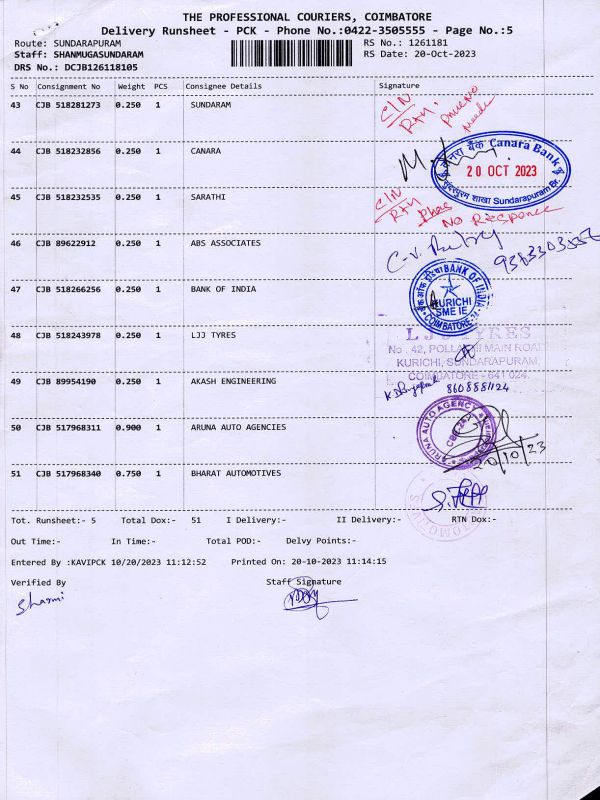 THE PROFESSIONAL COURIERS, COIMBATORE
Delivery Runsheet - PCK - Phone No.:0422-3505555 - Page No.:5
Route: SUNDARAPURAM RS No.: 1261181
Staff: SHANMUGASUNDARAM RS Date: 20-Oct-2023
DRS No.: DCJB126118105
S No Consignment No Weight PCS Consignee Details Signature
43 CJB 518281273 0.250 1 SUNDARAM
C/N
44 CJB 518232856 0.250 1 CANARA
केनरा बैंक Canara Bank
20 OCT 2023
सुंदरपुरम शाखा Sundarapuram Br.
45 CJB 518232535 0.250 1 SARATHI
C/N
No Responce
46 CJB 89622912 0.250 1 ABS ASSOCIATES
C-V.
47 CJB 518266256 0.250 1 BANK OF INDIA
BANK OF INDIA
KURICHI
SME IE
COIMBATORE
48 CJB 518243978 0.250 1 LJJ TYRES
LJJ TYRES
No. 42, POLLACHI MAIN ROAD
KURICHI, SUNDARAPURAM,
COIMBATORE - 641 024.
49 CJB 89954190 0.250 1 AKASH ENGINEERING
8608551124
50 CJB 517968311 0.900 1 ARUNA AUTO AGENCIES
ARUNA AUTO AGENCY
20/10/23
51 CJB 517968340 0.750 1 BHARAT AUTOMOTIVES
Tot. Runsheet:- 5 Total Dox:- 51 I Delivery:- II Delivery:- RTN Dox:-
Out Time:- In Time:- Total POD:- Delvy Points:-
Entered By :KAVIPCK 10/20/2023 11:12:52 Printed On: 20-10-2023 11:14:15
Verified By Staff Signature
Sharmi